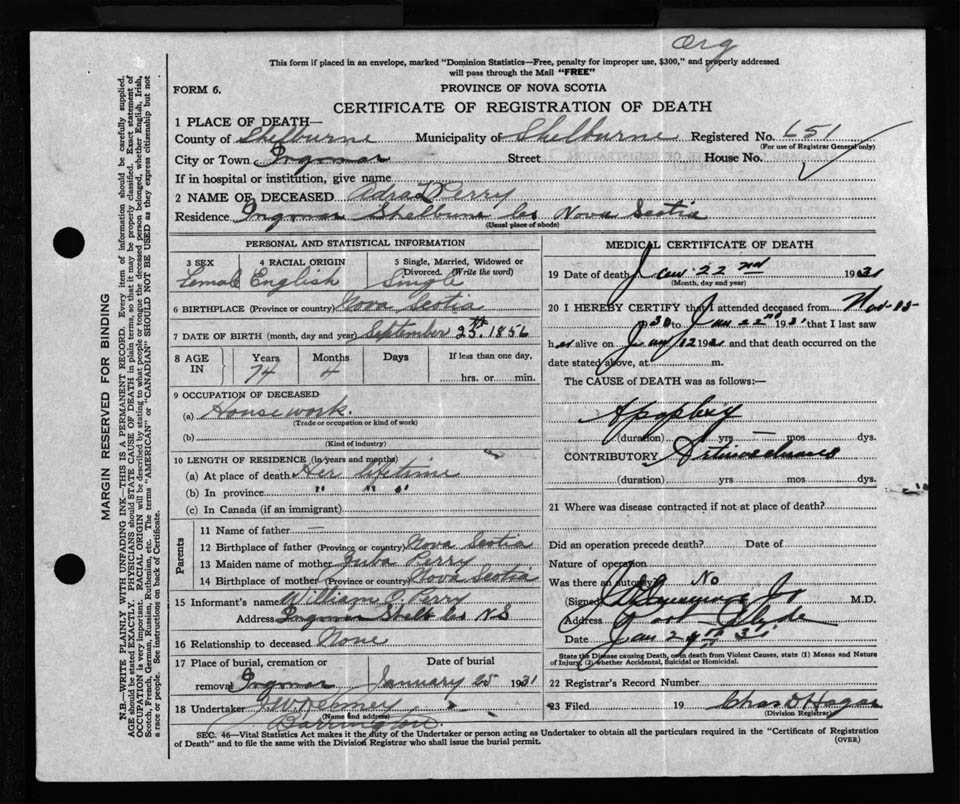 Org
This form if placed in an envelope, marked "Dominion Statistics—Free, penalty for improper use, $300," and properly addressed
will pass through the Mail "FREE"
FORM 6.
PROVINCE OF NOVA SCOTIA
CERTIFICATE OF REGISTRATION OF DEATH
1 PLACE OF DEATH—
County of Shelburne Municipality of Shelburne Registered No. 651
(For use of Registrar General only)
City or Town Ingomar Street House No.
If in hospital or institution, give name
2 NAME OF DECEASED Perry
Residence Ingomar Shelburne Co Nova Scotia
(Usual place of abode)
PERSONAL AND STATISTICAL INFORMATION
3 SEX 4 RACIAL ORIGIN 5 Single, Married, Widowed or
Divorced. (Write the word)
Female English Single
6 BIRTHPLACE (Province or country) Nova Scotia
7 DATE OF BIRTH (month, day and year) September 25th. 1856
8 AGE IN Years Months Days If less than one day,
74 4 hrs. or min.
9 OCCUPATION OF DECEASED
(a) Housework.
(Trade or occupation or kind of work)
(b)
(Kind of industry)
10 LENGTH OF RESIDENCE (in years and months)
(a) At place of death Her lifetime
(b) In province " " "
(c) In Canada (if an immigrant)
Parents
11 Name of father —
12 Birthplace of father (Province or country) Nova Scotia
13 Maiden name of mother Perry
14 Birthplace of mother (Province or country) Nova Scotia
15 Informant's name William C. Perry
Address Ingomar Shelb Co NS
16 Relationship to deceased None
17 Place of burial, cremation or Date of burial
removal Ingomar January 25 1931
18 Undertaker
(Name and address)
Barrington
MEDICAL CERTIFICATE OF DEATH
19 Date of death Jan 22nd 1931
(Month, day and year)
20 I HEREBY CERTIFY that I attended deceased from Nov-15
1930 to Jan 22nd 1931 that I last saw
her alive on Jany 12 1931 and that death occurred on the
date stated above, at m.
The CAUSE OF DEATH was as follows:—
Apoplexy
(duration) yrs — mos dys.
CONTRIBUTORY
(duration) yrs mos dys.
21 Where was disease contracted if not at place of death?
Did an operation precede death? Date of
Nature of operation
Was there an autopsy? No
(Signed) M.D.
Address Port Clyde
Date Jan 24th 31
State the Disease causing Death, or in death from Violent Causes, state (1) Means and Nature
of Injury, (2) whether Accidental, Suicidal or Homicidal.
22 Registrar's Record Number
23 Filed 19 Chas D
(Division Registrar)
SEC. 46—Vital Statistics Act makes it the duty of the Undertaker or person acting as Undertaker to obtain all the particulars required in the "Certificate of Registration
of Death" and to file the same with the Division Registrar who shall issue the burial permit.
(OVER)
MARGIN RESERVED FOR BINDING
N.B.—WRITE PLAINLY WITH UNFADING INK—THIS IS A PERMANENT RECORD. Every item of information should be carefully supplied.
AGE should be stated EXACTLY. PHYSICIANS should STATE CAUSE OF DEATH in plain terms, so that it may be properly classified. Exact statement of
OCCUPATION is very important. RACIAL ORIGIN will be described by stating to what people or tongue the deceased person belonged, whether English, Irish,
Scotch, French, German, Russian, Ruthenian, etc. The terms "AMERICAN" or "CANADIAN" SHOULD NOT BE USED as they express citizenship but not
a race or people. See instructions on back of Certificate.